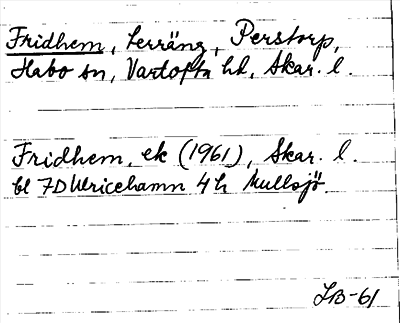 Fridhem, terräng, Perstorp,
Habo sn, Vartofta hd, Skar. l.
Fridhem, ek (1961), Skar. l.
bl 7D Ulricehamn 4h Mullsjö.
LB-61